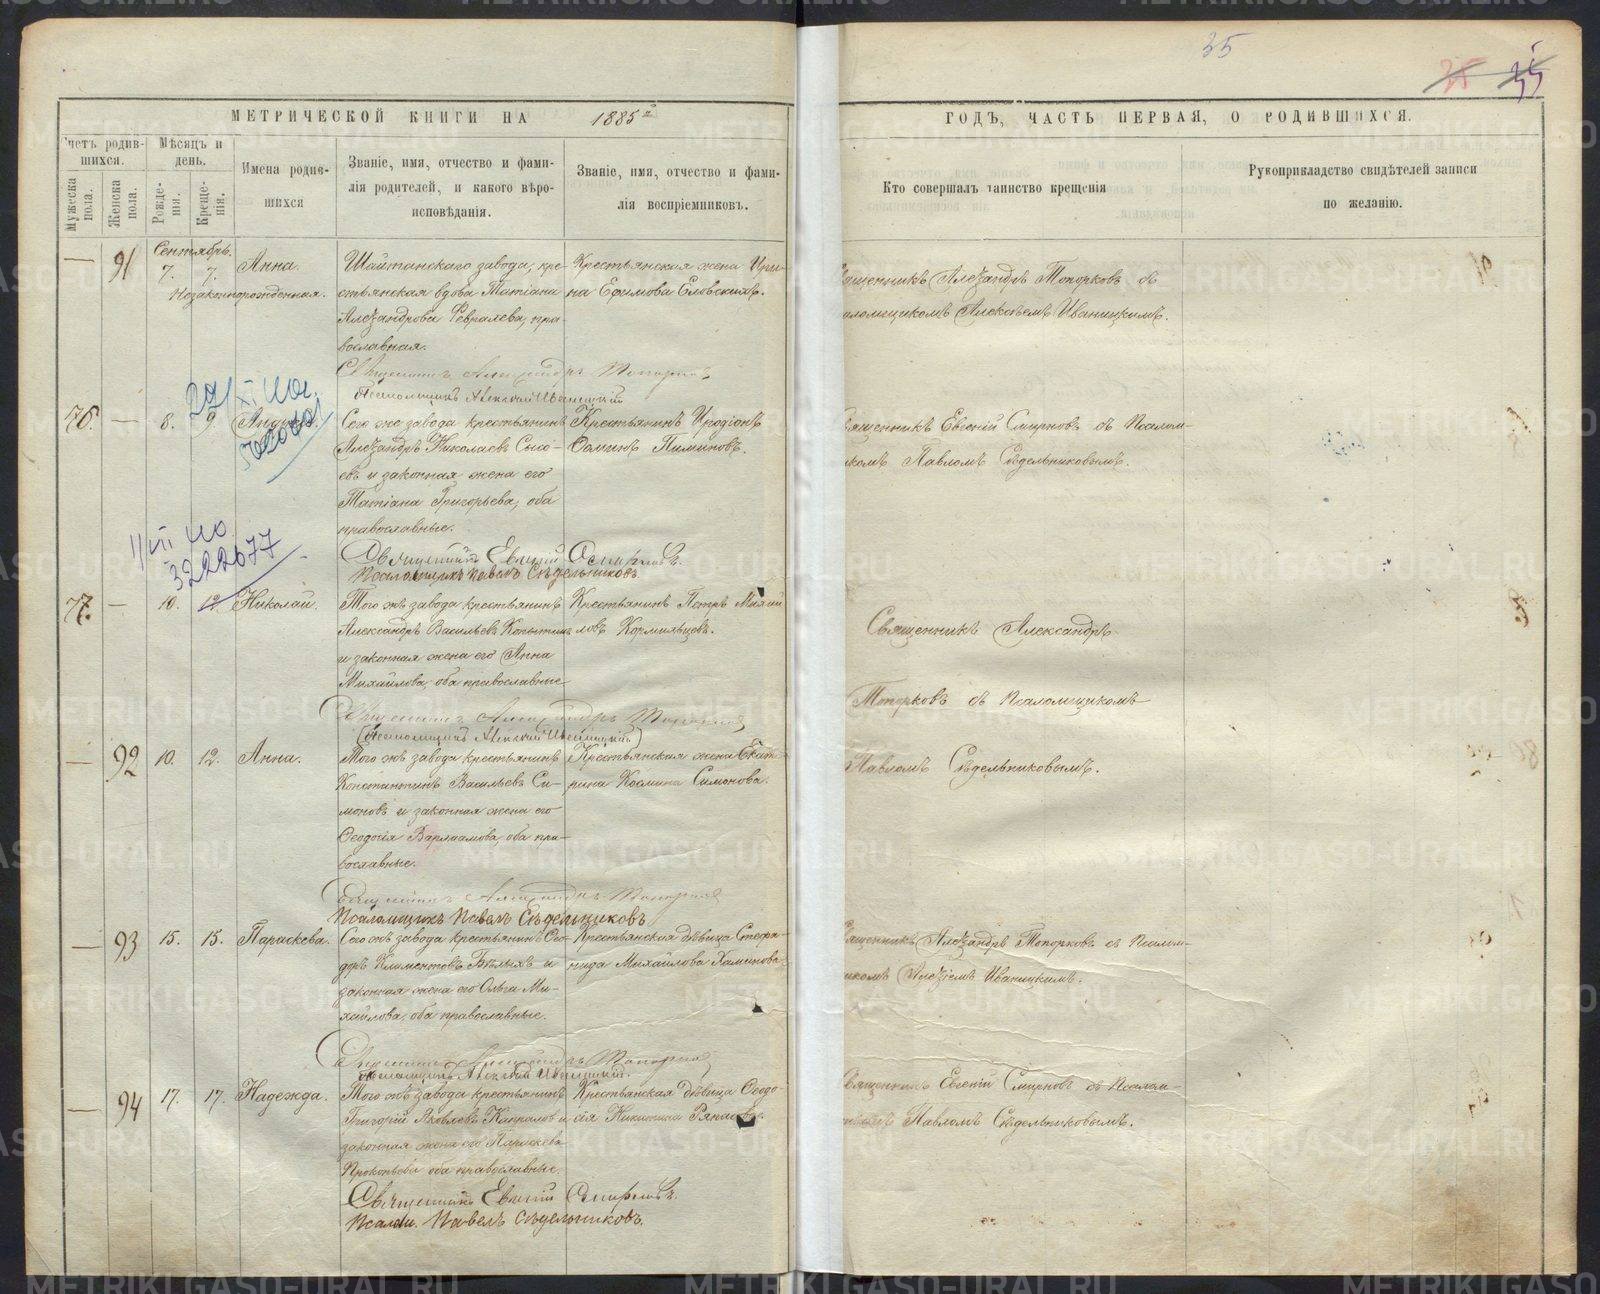 35
МЕТРИЧЕСКОЙ КНИГИ НА 1885й
ГОДЪ, ЧАСТЬ ПЕРВАЯ, О РОДИВШИХСЯ.
Счетъ родившихся.
Мужеска пола.
Женска пола.
Мѣсяцъ и день.
Рожденія.
Крещенія.
Имена родившихся
Званіе, имя, отчество и фамилія родителей, и какого вѣроисповѣданія.
Званіе, имя, отчество и фамилія воспріемниковъ.
Кто совершалъ таинство крещенія
Рукоприкладство свидѣтелей записи по желанію.
Сентябрь.
— 91 7. 7. Анна.
Незаконнорожденная.
Шайтанскаго завода, кре-
стьянская вдова Татіана
Александрова Февралева, пра-
вославная.
Крестьянская жена Ири-
на Ефимова Еловскихъ.
Священникъ Александръ Топорковъ съ
псаломщикомъ Алексѣемъ Иваницкимъ.
Священникъ Александръ Топорковъ
Псаломщикъ Алексѣй Иваницкій
76. — 8. 9
Сего же завода крестьянинъ
Александръ Николаевъ Сысо-
евъ и законная жена его
Татіана Григорьева, оба
православные.
Крестьянинъ Иродіонъ
Ѳоминъ Пиминовъ.
Священникъ Евгеній Смирновъ съ Псалом-
щикомъ Павломъ Сѣдельниковымъ.
Священникъ Евгеній Смирновъ
Псаломщикъ Павелъ Сѣдельниковъ.
3222677
77. — 10. 12 Николай.
Того же завода крестьянинъ
Александръ Васильевъ Копытовъ
и законная жена его Анна
Михайлова, оба православные
Крестьянинъ Петръ
Кормильцевъ.
Священникъ Александръ
Топорковъ съ Псаломщикомъ
Павломъ Сѣдельниковымъ.
Священникъ Александръ Топорковъ
Псаломщикъ Алексѣй Иваницкій
— 92 10. 12. Анна.
Того же завода крестьянинъ
Константинъ Васильевъ Си-
моновъ и законная жена его
Ѳеодосія Варлаамова, оба пра-
вославные.
Крестьянская жена Екате-
рина Космина Симонова.
Священникъ Александръ Топорковъ
Псаломщикъ Павелъ Сѣдельниковъ
— 93 15. 15. Параскева.
Сего же завода крестьянинъ Ѳео-
доръ Климентовъ Бѣлыхъ и
законная жена его Ольга Ми-
хайлова, оба православные.
Крестьянская дѣвица Стефа-
нида Михайлова Хаминова
Священникъ Александръ Топорковъ съ Псалом-
щикомъ Алексѣемъ Иваницкимъ.
Священникъ Александръ Топорковъ
Псаломщикъ Алексѣй Иваницкій.
— 94 17. 17. Надежда.
Того же завода крестьянинъ
Григорій Яковлевъ Капраловъ и
законная жена его Параскева
Прокопьева оба православные.
Крестьянская дѣвица Ѳеодо-
сія Никитина
Священникъ Евгеній Смирновъ съ Псалом-
щикомъ Павломъ Сѣдельниковымъ.
Священникъ Евгеній Смирновъ
Псалом. Павелъ Сѣдельниковъ.
METRIKI.GASO-URAL.RU